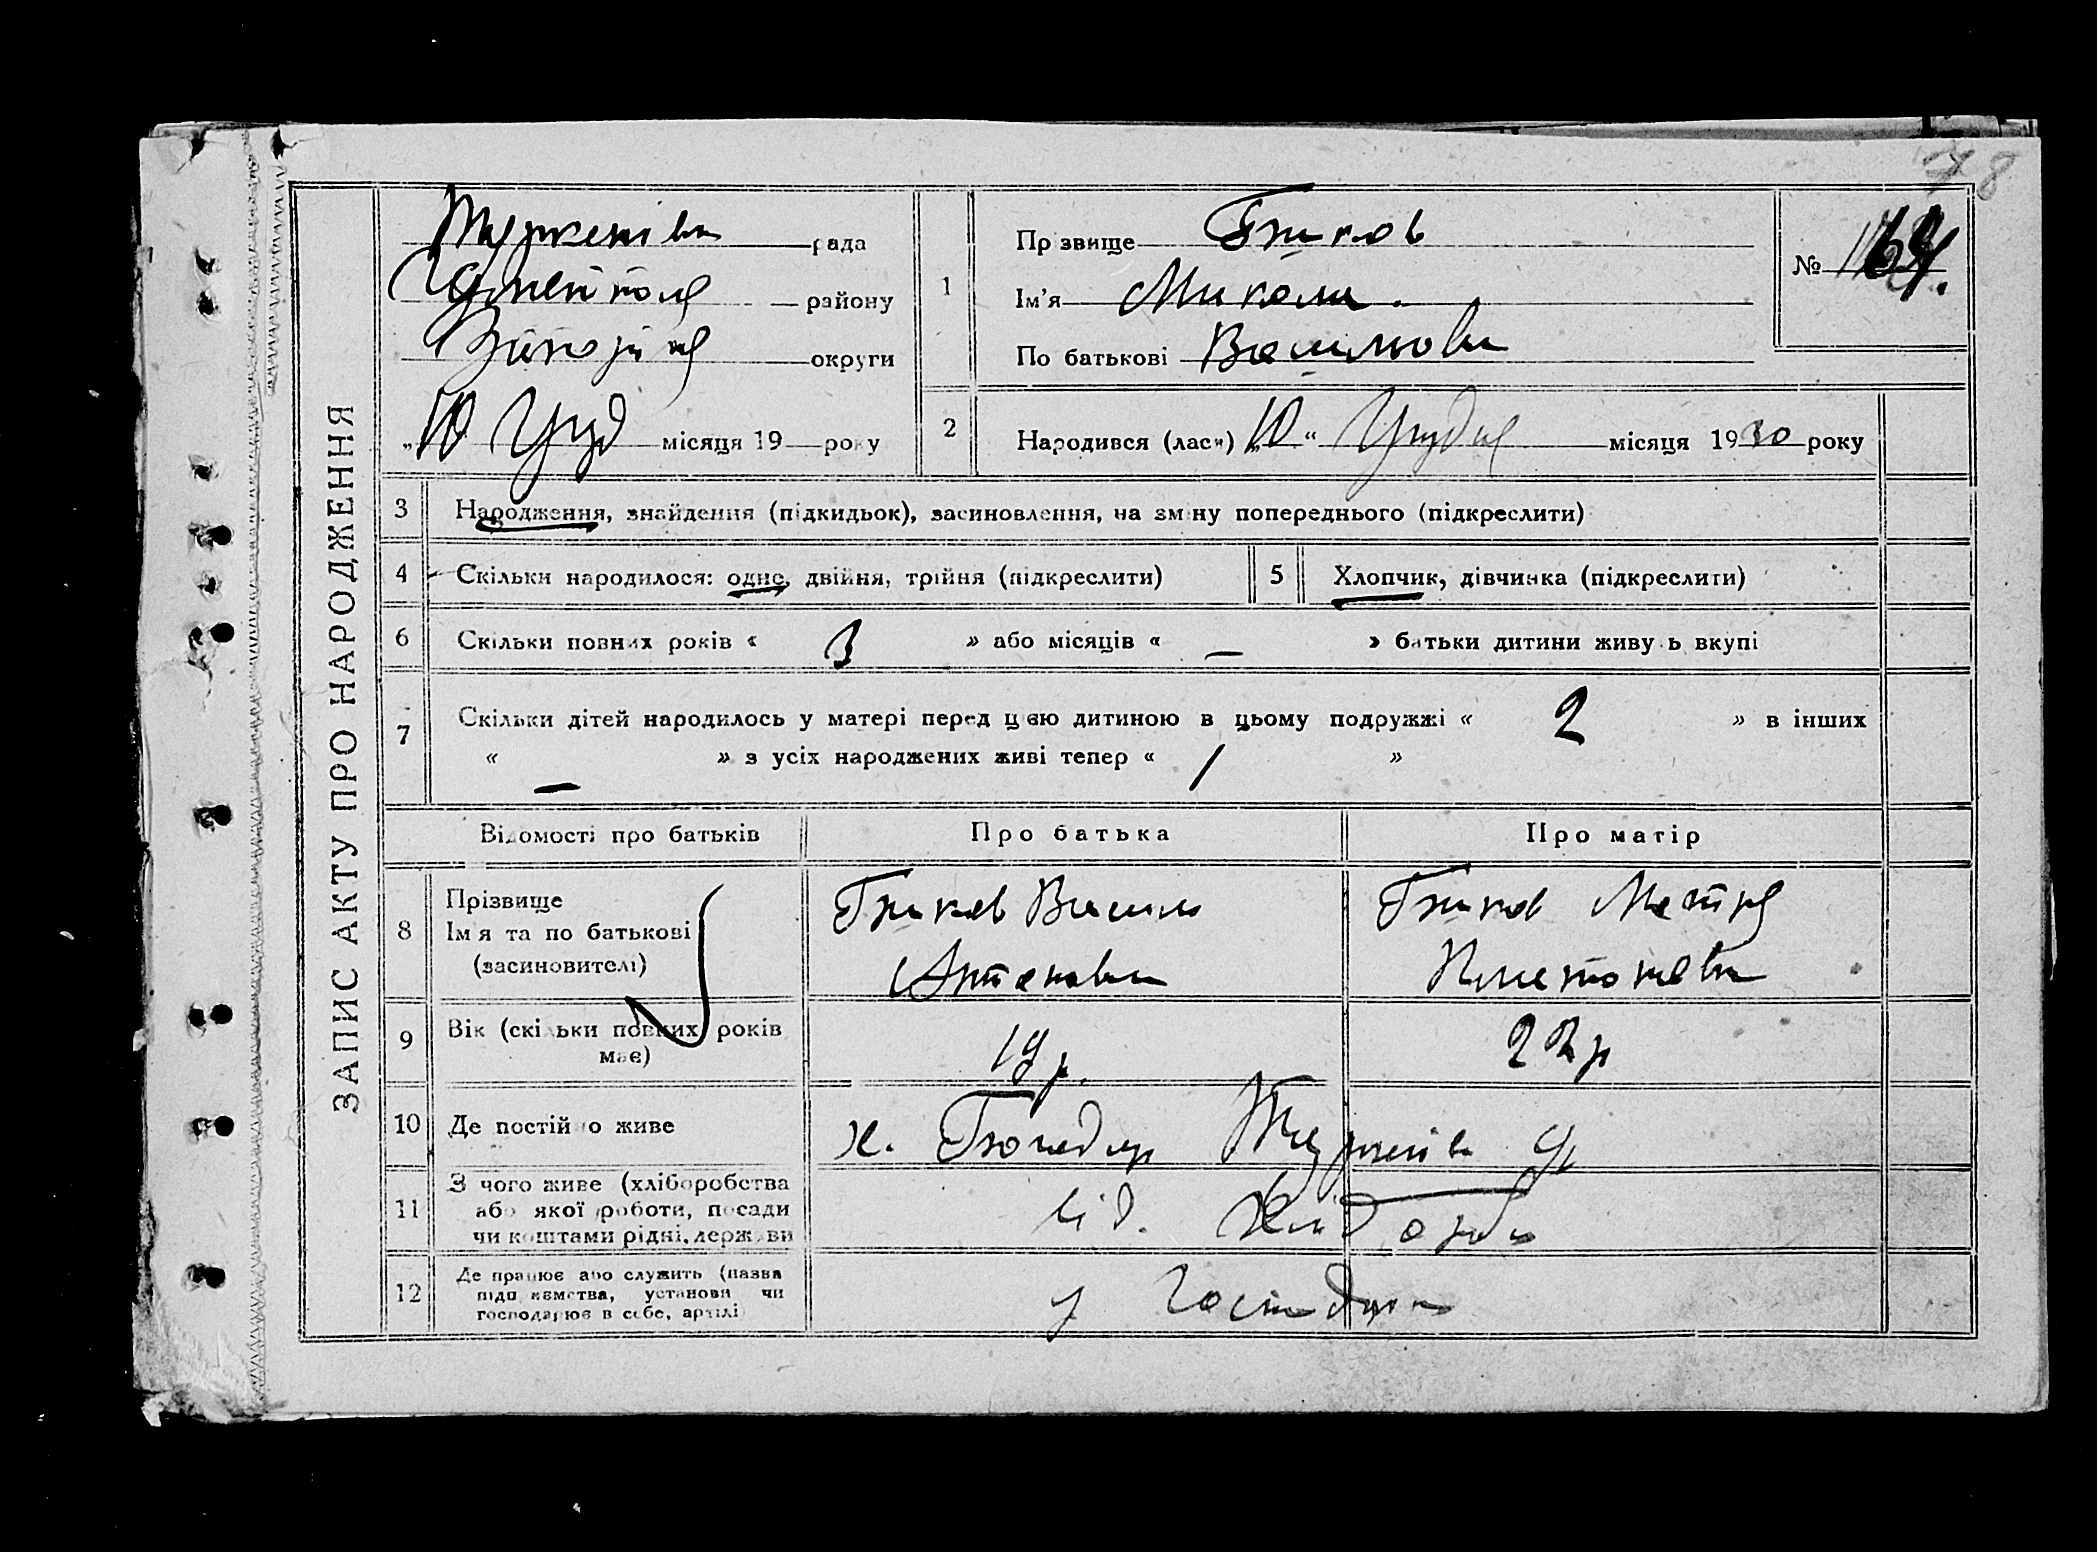 78
ЗАПИС АКТУ ПРО НАРОДЖЕННЯ
рада
району
округи
„10 Груд місяця 19 року
1
Прізвище Биков
Ім'я Микола
По батькові Васильови
№
2
Народився (лась) „10“ Грудня місяця 1930 року
3
Народження, знайдення (підкидьок), засиновлення, на зміну попереднього (підкреслити)
4
Скільки народилося: одне, двійня, трійня (підкреслити)
5
Хлопчик, дівчинка (підкреслити)
6
Скільки повних років « 3 » або місяців « — » батьки дитини живуть вкупі
7
Скільки дітей народилось у матері перед цією дитиною в цьому подружжі « 2 » в інших
« — » з усіх народжених живі тепер « 1 »
Відомості про батьків
Про батька
Про матір
8
Прізвище
Ім'я та по батькові
(засиновителі)
Биков Василь
Антонови
Биков Мотря
Платоновна
9
Вік (скільки повних років
має)
19 р.
22 р
10
Де постійно живе
х.
11
З чого живе (хліборобства
або якої роботи, посади
чи коштами рідні, держави
від. Хлібороби
12
Де працює або служить (назва
підприємства, установи чи
господарює в себе, артілі)
у Господарці